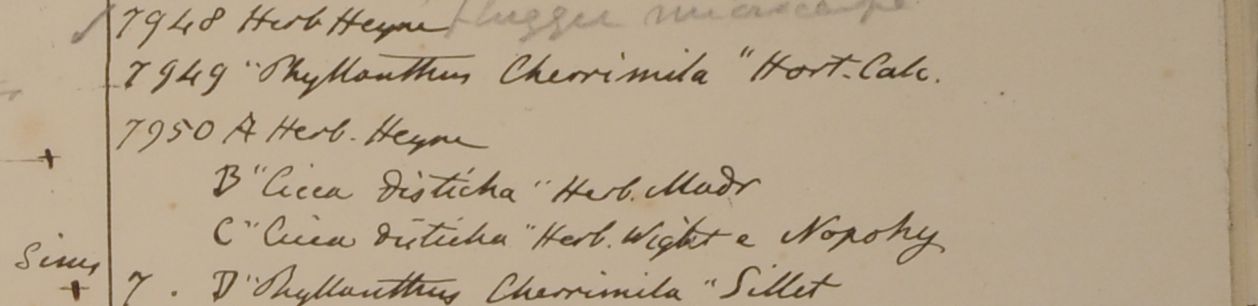 7948 Herb Heyne Fluggea microcarpa
7949 "Phyllanthus Cherrimila" Hort. Calc.
7950 A Herb. Heyne
B "Cicca disticha" Herb. Madr
C "Cicca disticha" Herb. Wight e Nopohy
Sims
7. D "Phyllanthus Cherrimila" Sillet